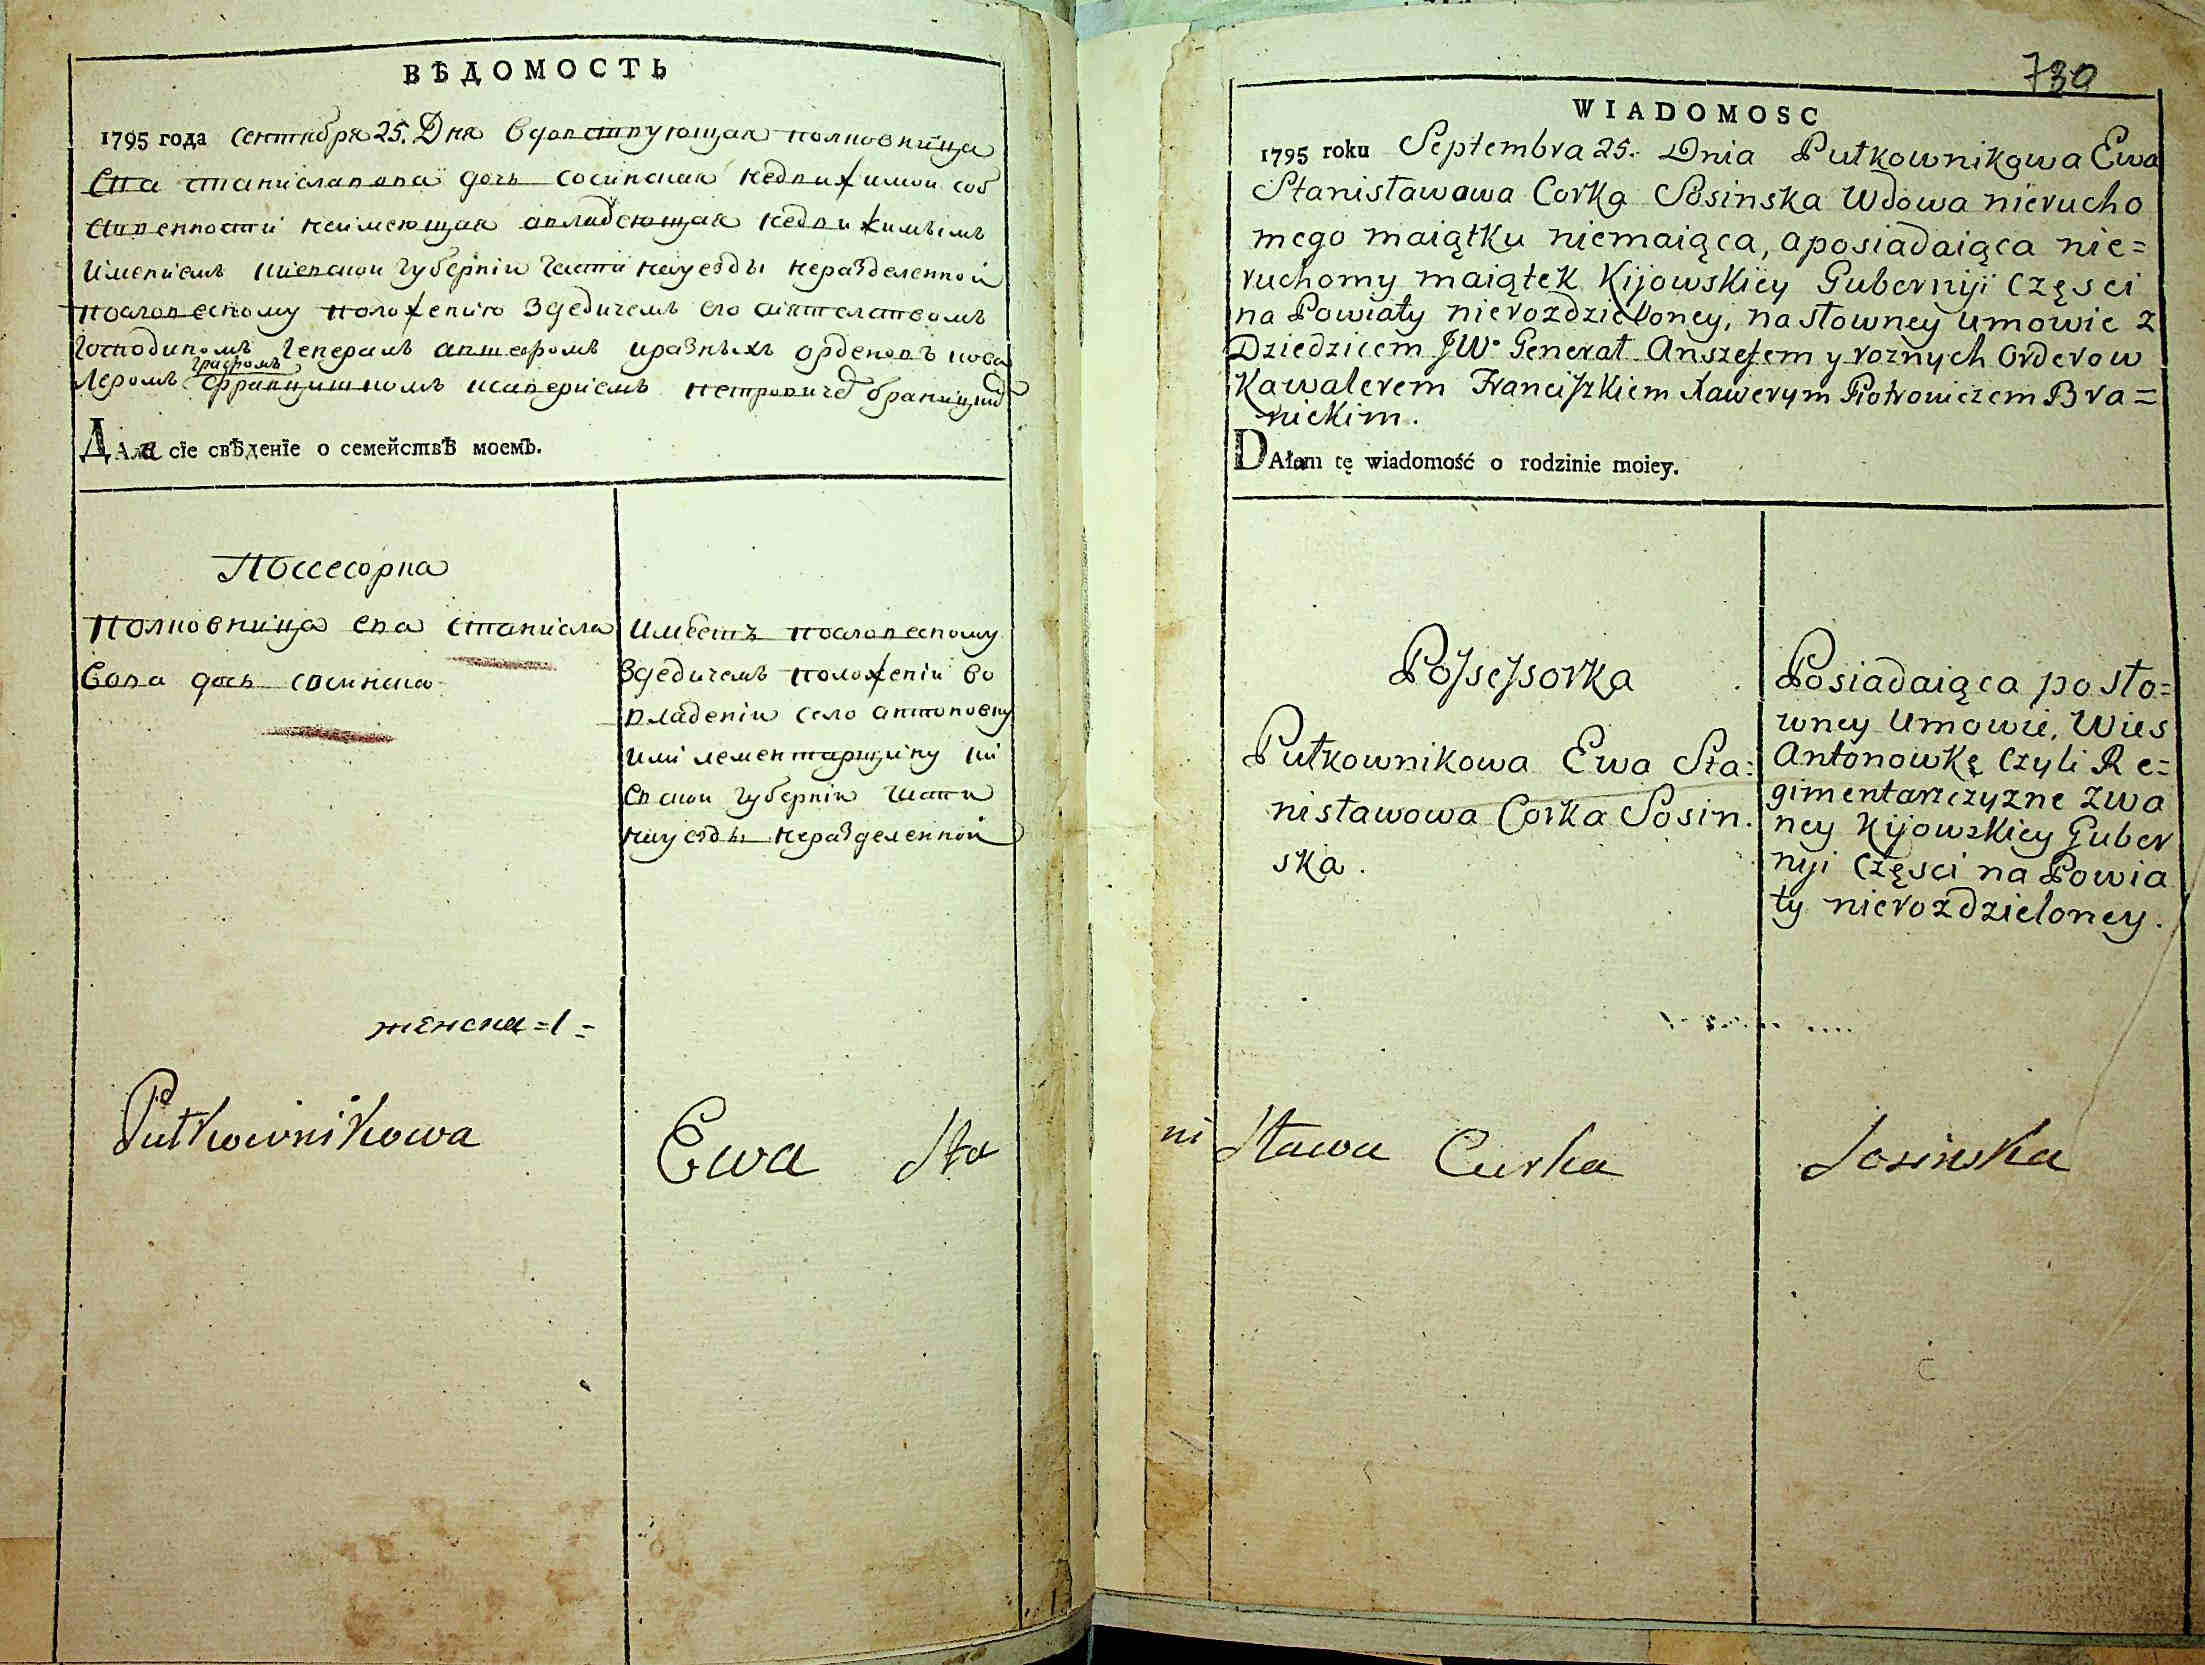 ВѢДОМОСТЬ
1795 года Сентября 25. Дня вдовствующая полковница
Ева Станиславова дочь Сосинская недвижимой соб
ственности неимеющая авладеющая недвижимымъ
имениемъ Киевской Губерніи Части науезды неразделенной
пословесному положению Здедичемъ его сиятелствомъ
Господиномъ Генералъ аншефомъ иразныхъ орденовъ кова
графомъ
леромъ Францишкомъ Ксавериемъ Петровиче браницкиі
Дала сїе свѣденїе о семействѣ моемъ.
Поссесорка
Полковница Ева Станисла
вова дочь Сосинска
имѣетъ пословесному
Здедичемъ положеніи во
владеніи село антоновку
или лементарщину Ки
евской Губерніи Части
науезды неразделенной
женска =1=
Pułkownikowa Ewa Sta
730
WIADOMOSC
1795 roku Septembra 25. Dnia Pułkownikowa Ewa
Stanisławowa Corka Sosinska Wdowa nierucho
mego maiątku niemaiąca, aposiadaiąca nie=
ruchomy maiątek Kijowskiey Gubernyi Częsci
na Powiaty nierozdzieloney, na słowney umowie z
Dziedzicem JW. Generał Anszefem y roznych Orderow
Kawalerem Franciszkiem Xawerym Piotrowiczem Bra=
nickim.
DAłam tę wiadomość o rodzinie moiey.
Possessorka
Pułkownikowa Ewa Sta=
nisławowa Corka Sosin.
ska.
Posiadaiąca po sło=
wney Umowie, Wies
Antonowkę Czyli Re=
gimentarszczyzne zwa
ney Kijowskiey Guber
nyi Częsci na Powia
ty nierozdzieloney.
ni sława Curka Sosinska